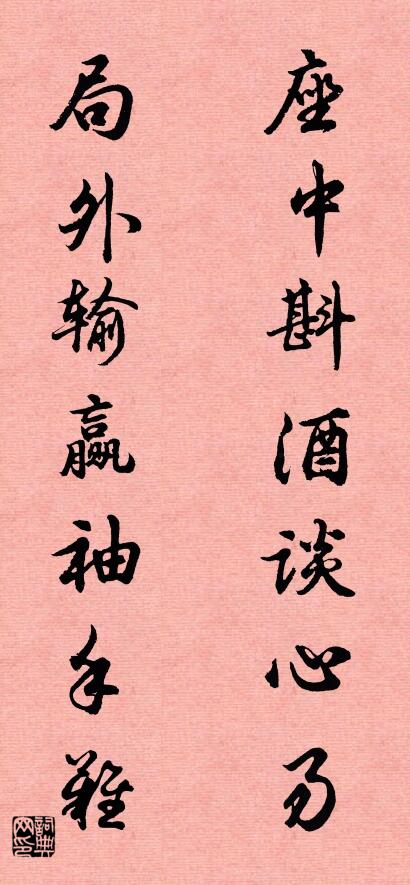 座中斟酒谈心易
局外输赢袖手难
词典网印